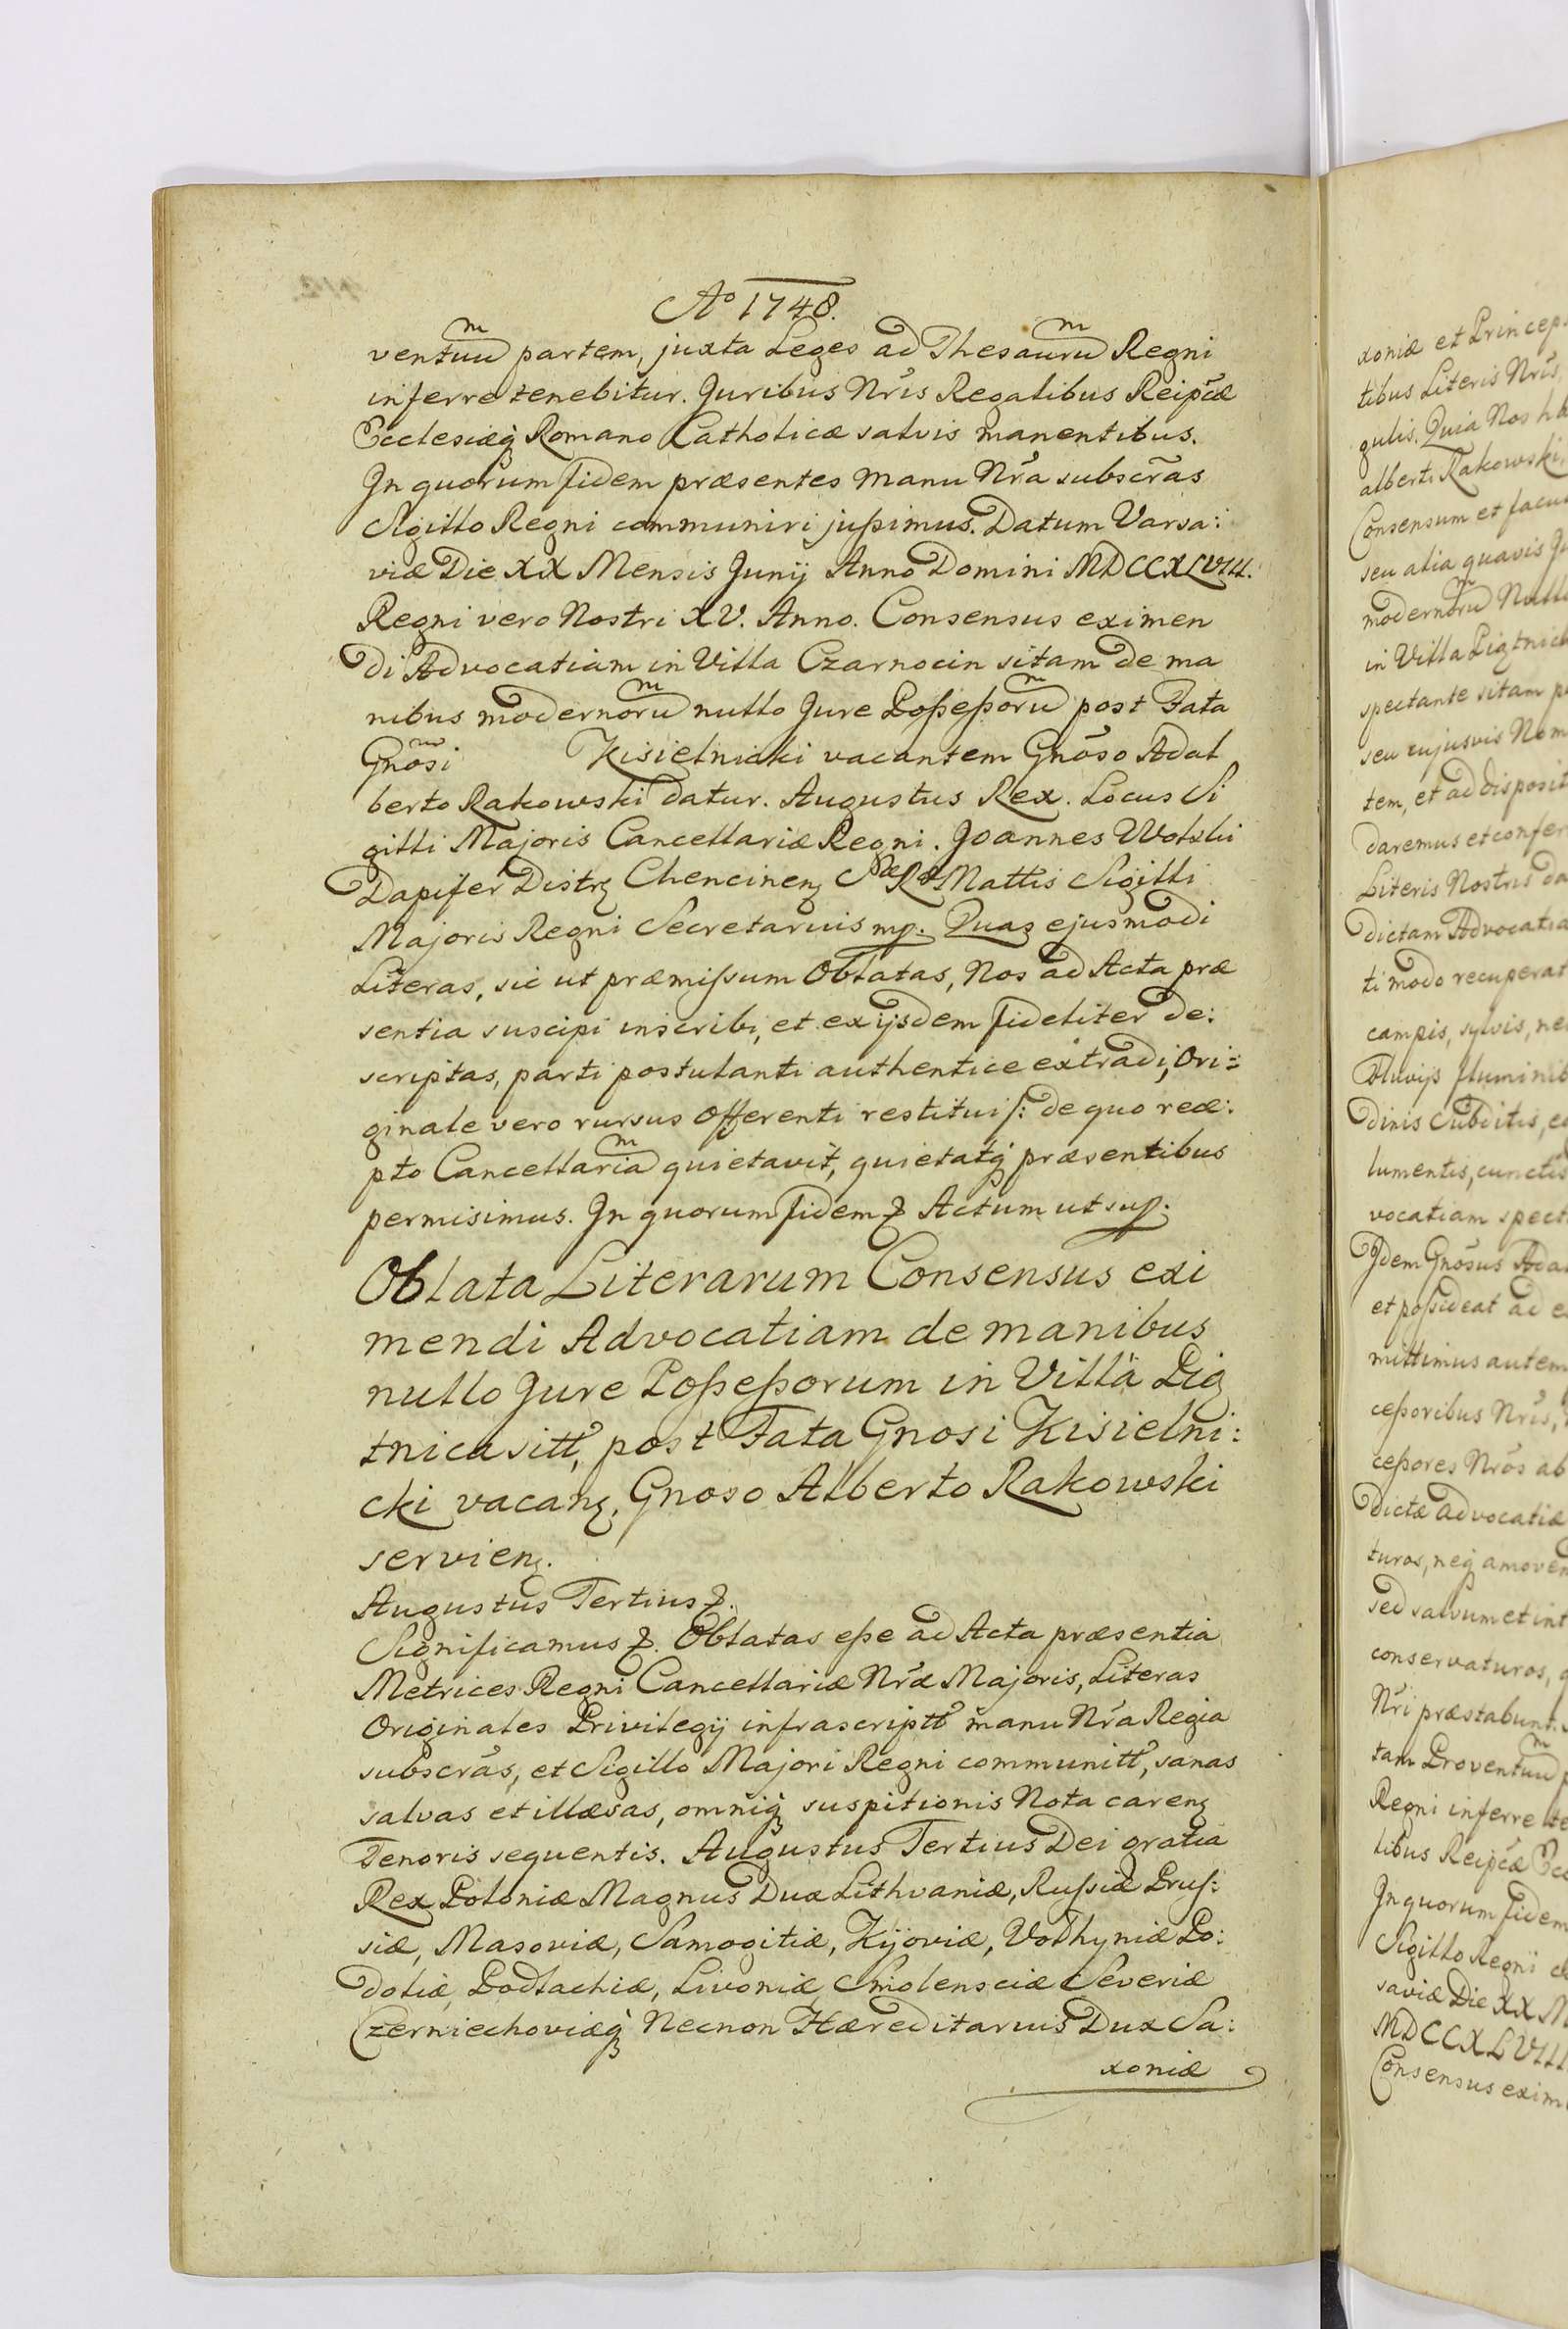 Ao 1748.
ventuum partem, juxta Leges ad Thesaurum Regni
inferre tenebitur. Juribus Nris Regalibus Reipcæ
Ecclesiæq Romano Catholicæ salvis manentibus.
In quorum fidem præsentes manu Nra subscras
Sigillo Regni communiri jußimus. Datum Varsa:
viæ Die XX Mensis Junij Anno Domini MDCCXLVIII.
Regni vero Nostri XV. Anno. Consensus eximen
di Advocatiam in Villa Czarnocin sitam de ma
nibus modernorum nullo Jure Poßeßorum post Fata
Gnosi Kisielnicki vacantem Gnoso Adal
berto Rakowski datur. Augustus Rex. Locus Si
gilli Majoris Cancellariæ Regni. Joannes Wolski
Dapifer Distrz Chencinenz Sæ Ræ Mattis Sigilli
Majoris Regni Secretarius mp. Quas ejusmodi
Literas, sic ut præmissum Oblatas, Nos ad Acta præ
sentia suscipi inscribi, et ex ijsdem fideliter de:
scriptas, parti postulanti authentice extradi, Ori:
ginale vero rursus Offerenti restitui s: de quo rece:
pto Cancellariam quietavit, quietatq præsentibus
permisimus. In quorum fidem & Actum ut sup.
Oblata Literarum Consensus exi
mendi Advocatiam de manibus
nullo Jure Poßeßorum in Villa Pią
tnica sitt, post Fata Gnosi Kisielni:
cki vacanz, Gnoso Alberto Rakowski
servienz.
Augustus Tertius &.
Significamus &. Oblatas eße ad Acta præsentia
Metrices Regni Cancellariæ Nræ Majoris, Literas
Originales Privilegij infrascriptt manu Nra Regia
subscras, et Sigillo Majori Regni communitt, sanas
salvas et illæsas, omniq suspitionis Nota carenz
Tenoris sequentis. Augustus Tertius Dei gratia
Rex Poloniæ Magnus Dux Lithvaniæ, Rußiæ Prus:
siæ, Masoviæ, Samogitiæ, Kijoviæ, Volhyniæ Po:
doliæ, Podlachiæ, Livoniæ Smolensciæ Severiæ
Czerniechoviæq Necnon Hæreditarius Dux Sa:
xoniæ
xoniæ et Princep
tibus Literis Nris,
gulis. Quia Nos h
alberti Rakowski
Consensum et facu
seu alia quavis Ju
modernorum Null
in Villa Piątnic
spectante sitam p
seu cujusvis Nom
tem, et ad disposit
daremus et confer
Literis Nostris da
dictam Advocatia
ti modo recuperat
campis, sylvis, ne
fluvijs fluminib
dinis Subditis, c
lumentis, cunctis
vocatiam spect
Idem Gnosus Ada
et poßideat ad e
mittimus autem
ceßoribus Nris,
ceßores Nros ab
dictæ advocatiæ
turos, neq amoven
sed salvum et int
conservaturos, q
Nri præstabunt.
tam Proventuum p
Regni inferre te
libus Reipcæ Ecc
In quorum fidem
Sigillo Regni c
saviæ Die XX M
MDCCXLVIII
Consensus exim